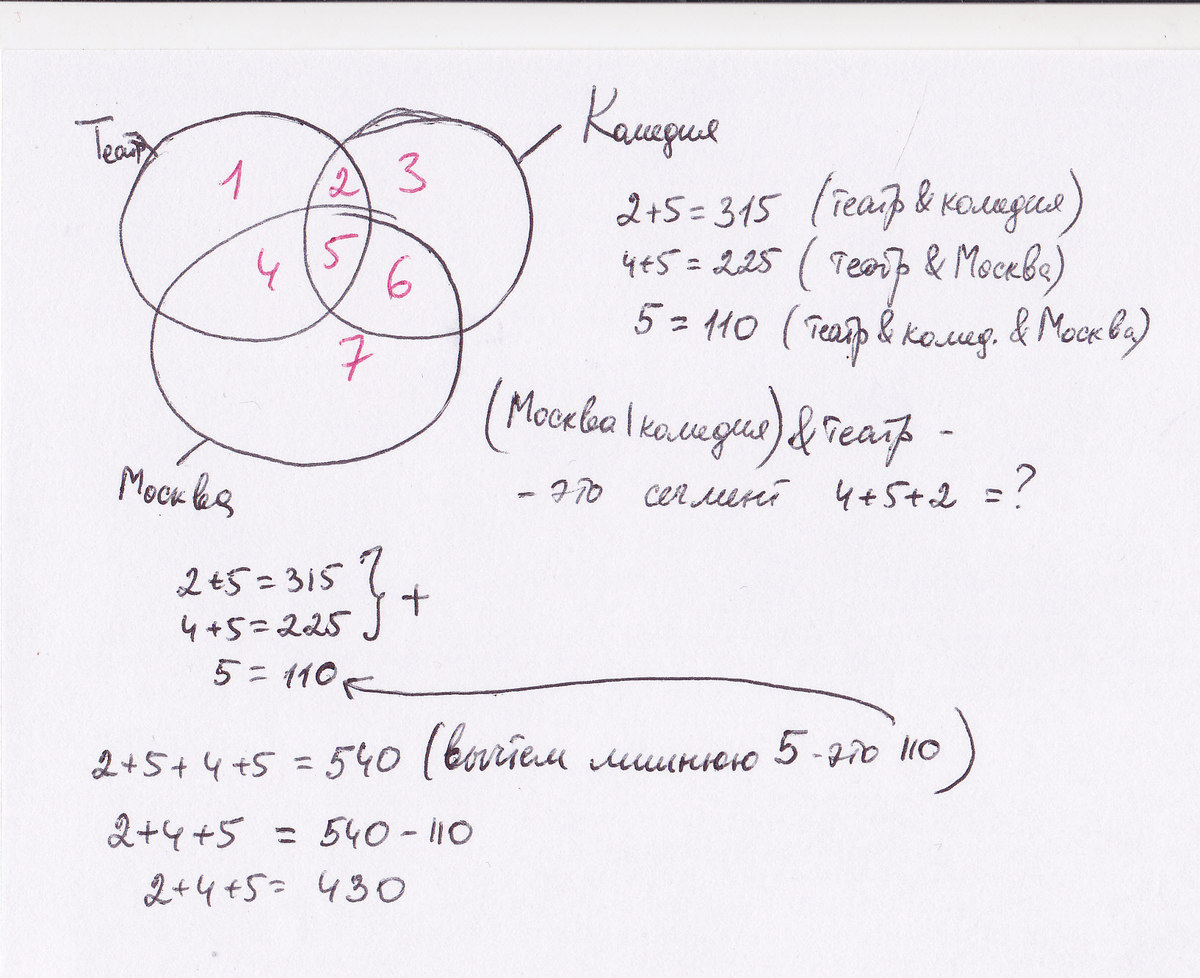 Театр
Комедия
1 2 3
4 5 6
7
Москва
2+5=315 (театр & комедия)
4+5=225 (театр & Москва)
5=110 (театр & комед. & Москва)
(Москва | комедия) & театр -
- это сегмент 4+5+2 =?
2+5=315 } +
4+5=225
5=110
2+5+4+5=540 (вычтем лишнюю 5-это 110)
2+4+5 = 540-110
2+4+5= 430